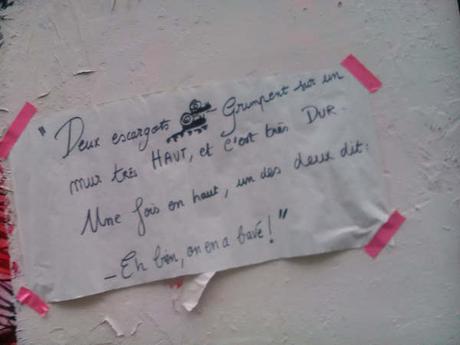 "Deux escargots Grimpent sur un
mur très HAUT, et c'est très DUR.
Une fois en haut, un des deux dit:
— Eh bien, on en a bavé!"